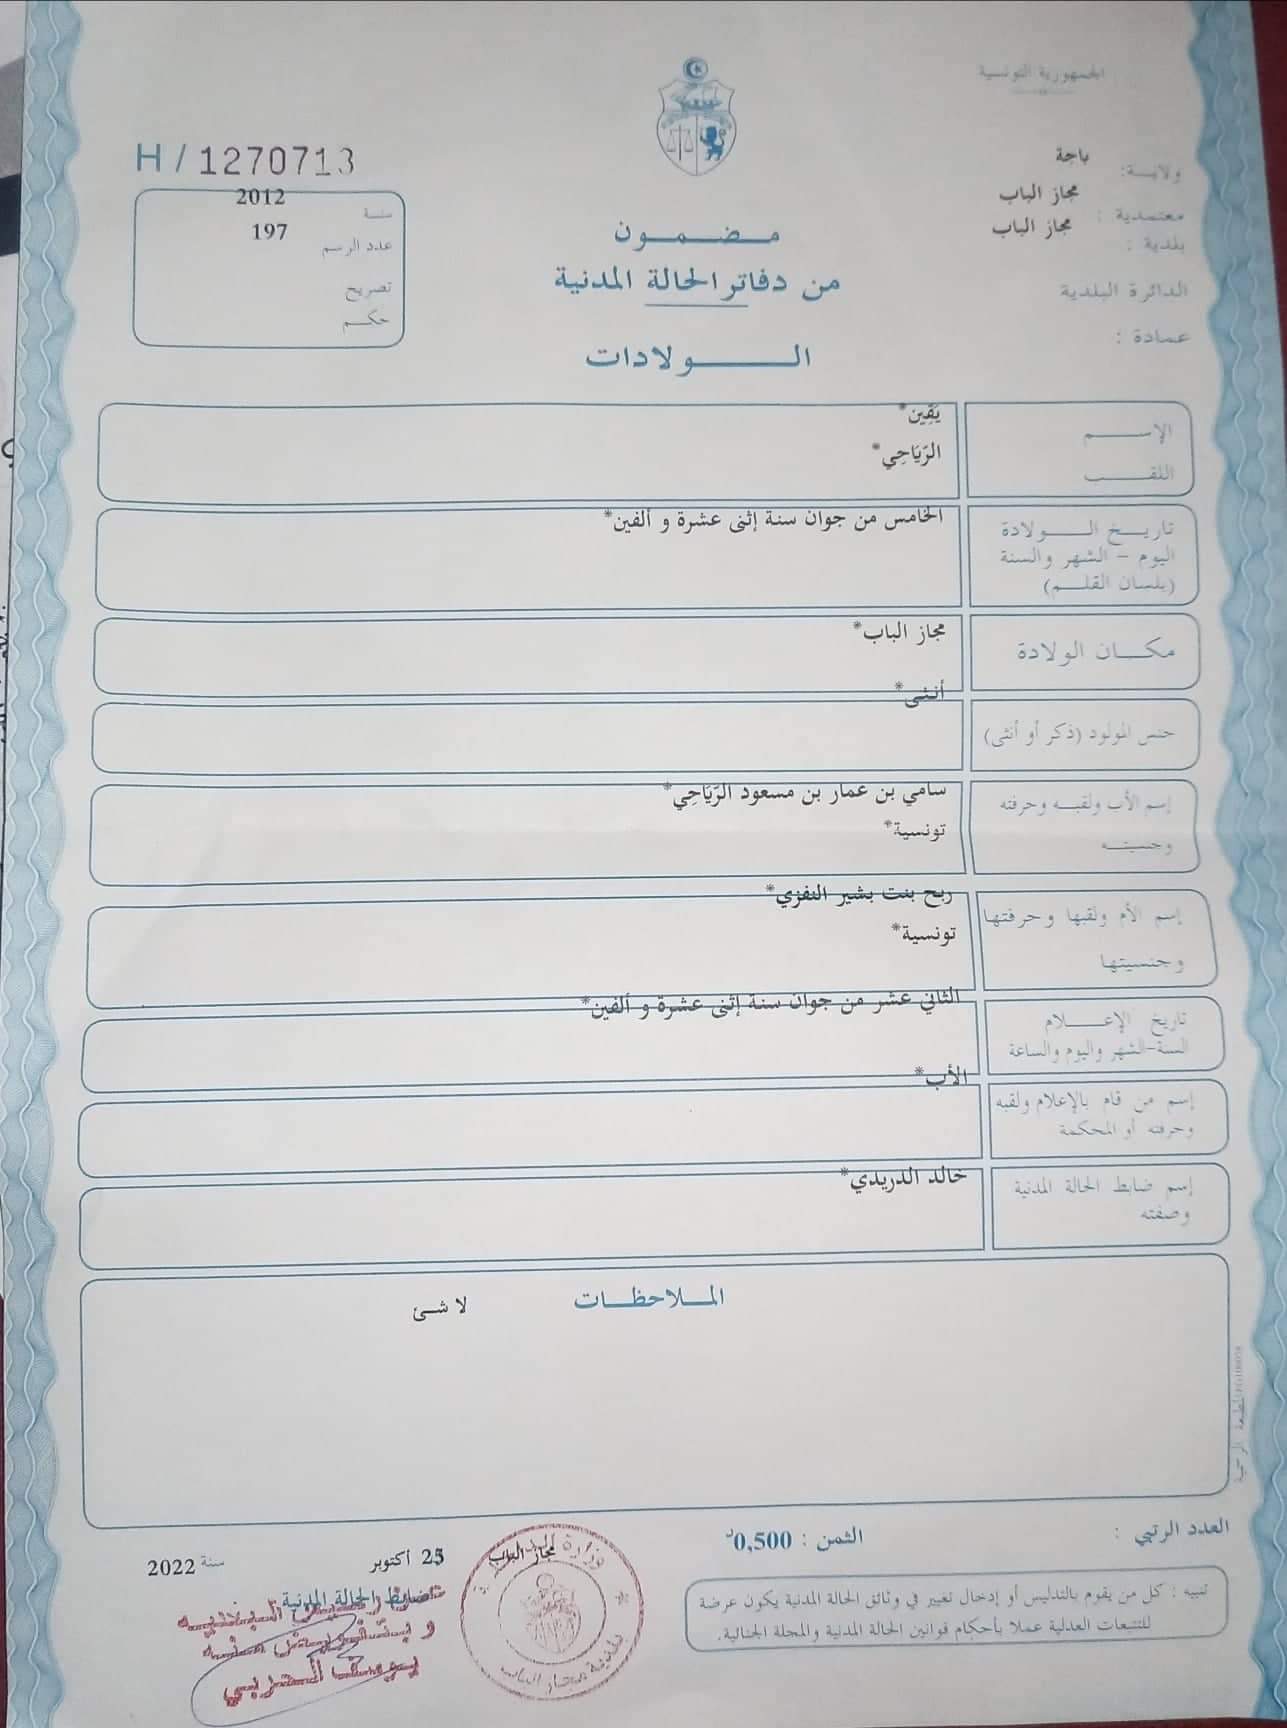 الجمهورية التونسية
H / 1270713
ولايـة: باجة
معتمدية : مجاز الباب
بلدية : مجاز الباب
الدائرة البلدية
عمادة :
سنة 2012
عدد الرسم 197
تصريح
حكم
مضمون
من دفاتر الحالة المدنية
الولادات
الإسم يَقِين*
اللقب الرّيَاحِي*
تاريخ الولادة
اليوم - الشهر والسنة
(بلسان القلم)
الخامس من جوان سنة إثنى عشرة و ألفين*
مكان الولادة
مجاز الباب*
جنس المولود (ذكر أو أنثى)
أنثى*
إسم الأب ولقبه وحرفته
وجنسيته
سامي بن عمار بن مسعود الرّيَاحِي*
تونسية*
إسم الأم ولقبها وحرفتها
وجنسيتها
ربح بنت بشير النفزي*
تونسية*
تاريخ الإعلام
السنة-الشهر واليوم والساعة
الثاني عشر من جوان سنة إثنى عشرة و ألفين*
إسم من قام بالإعلام ولقبه
وحرفته أو المحكمة
الأب*
إسم ضابط الحالة المدنية
وصفته
خالد الدريدي*
الملاحظات
لا شئ
المطبعة الرسمية
العدد الرتبي :
الثمن : 0,500د
تنبيه : كل من يقوم بالتدليس أو إدخال تغيير في وثائق الحالة المدنية يكون عرضة
للتتبعات العدلية عملا بأحكام قوانين الحالة المدنية والمجلة الجنائية.
مجاز الباب 25 أكتوبر سنة 2022
ضابط الحالة المدنية
و بتفويض منه
يوسف الحربي
بلدية مجاز الباب